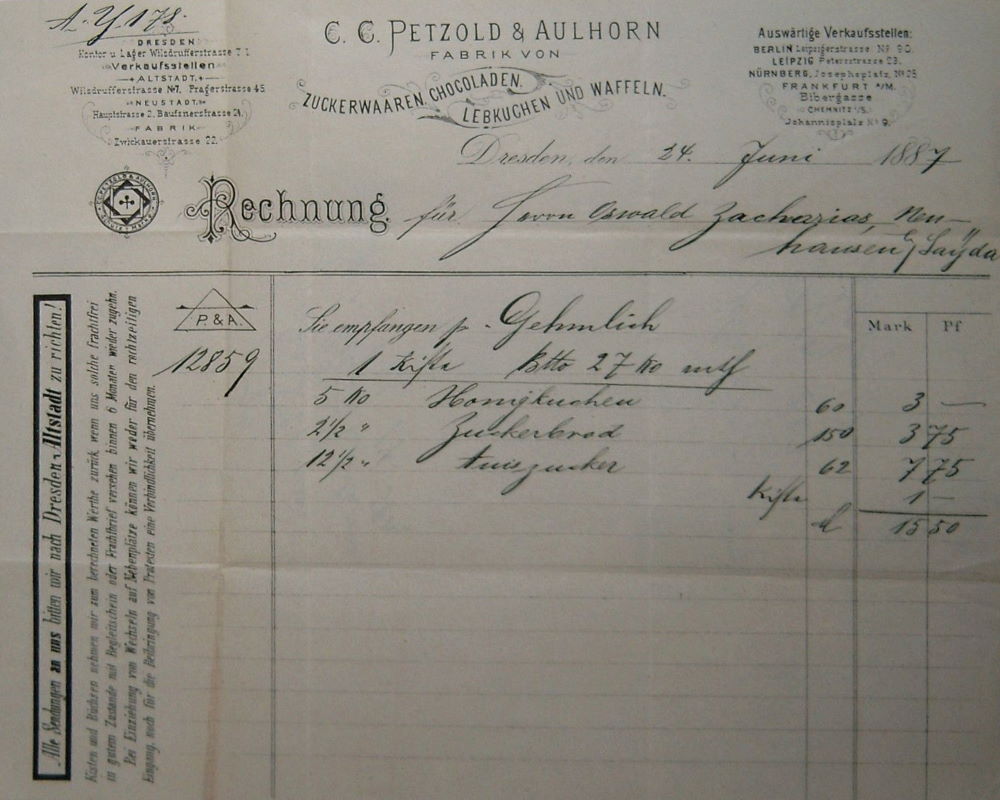 A. Y. 178.
DRESDEN
Kontor u. Lager Wilsdrufferstrasse 7 I.
Verkaufsstellen
ALTSTADT,
Wilsdrufferstrasse No 7. Pragerstrasse 45.
NEUSTADT,
Hauptstrasse 2, Bautznerstrasse 24,
FABRIK
Zwickauerstrasse 22.
C. C. PETZOLD & AULHORN
FABRIK VON
ZUCKERWAAREN, CHOCOLADEN,
LEBKUCHEN UND WAFFELN.
Auswärtige Verkaufsstellen:
BERLIN Leipzigerstrasse No 90.
LEIPZIG Petersstrasse 23.
NÜRNBERG, Josephsplatz, No 25
FRANKFURT a/M.
Bibergasse
CHEMNITZ i/S.
Johannisplatz No 9.
Dresden, den 24. Juni 1887
C.C. PETZOLD & AULHORN
Rechnung für Herrn Oswald Zacharias, Neu-
hausen b/ Sayda
Alle Sendungen an uns bitten wir nach Dresden-Altstadt zu richten!
Kisten und Büchsen nehmen wir zum berechneten Werthe zurück, wenn uns solche frachtfrei
in gutem Zustande mit Begleitschein oder Frachtbrief versehen binnen 6 Monaten wieder zugehn.
Bei Einziehung von Wechseln auf Nebenplätze können wir weder für den rechtzeitigen
Eingang, noch für die Beibringung von Protesten eine Verbindlichkeit übernehmen.
P. & A.
12859
Mark Pf
Sie empfangen p. Gehmlich
1 Kiste Btto 27 Ko
5 Ko Honigkuchen 60 3 —
2½ " Zuckerbrod 150 3 75
12½ " Aniszucker 62 7 75
Kiste 1 —
15 50